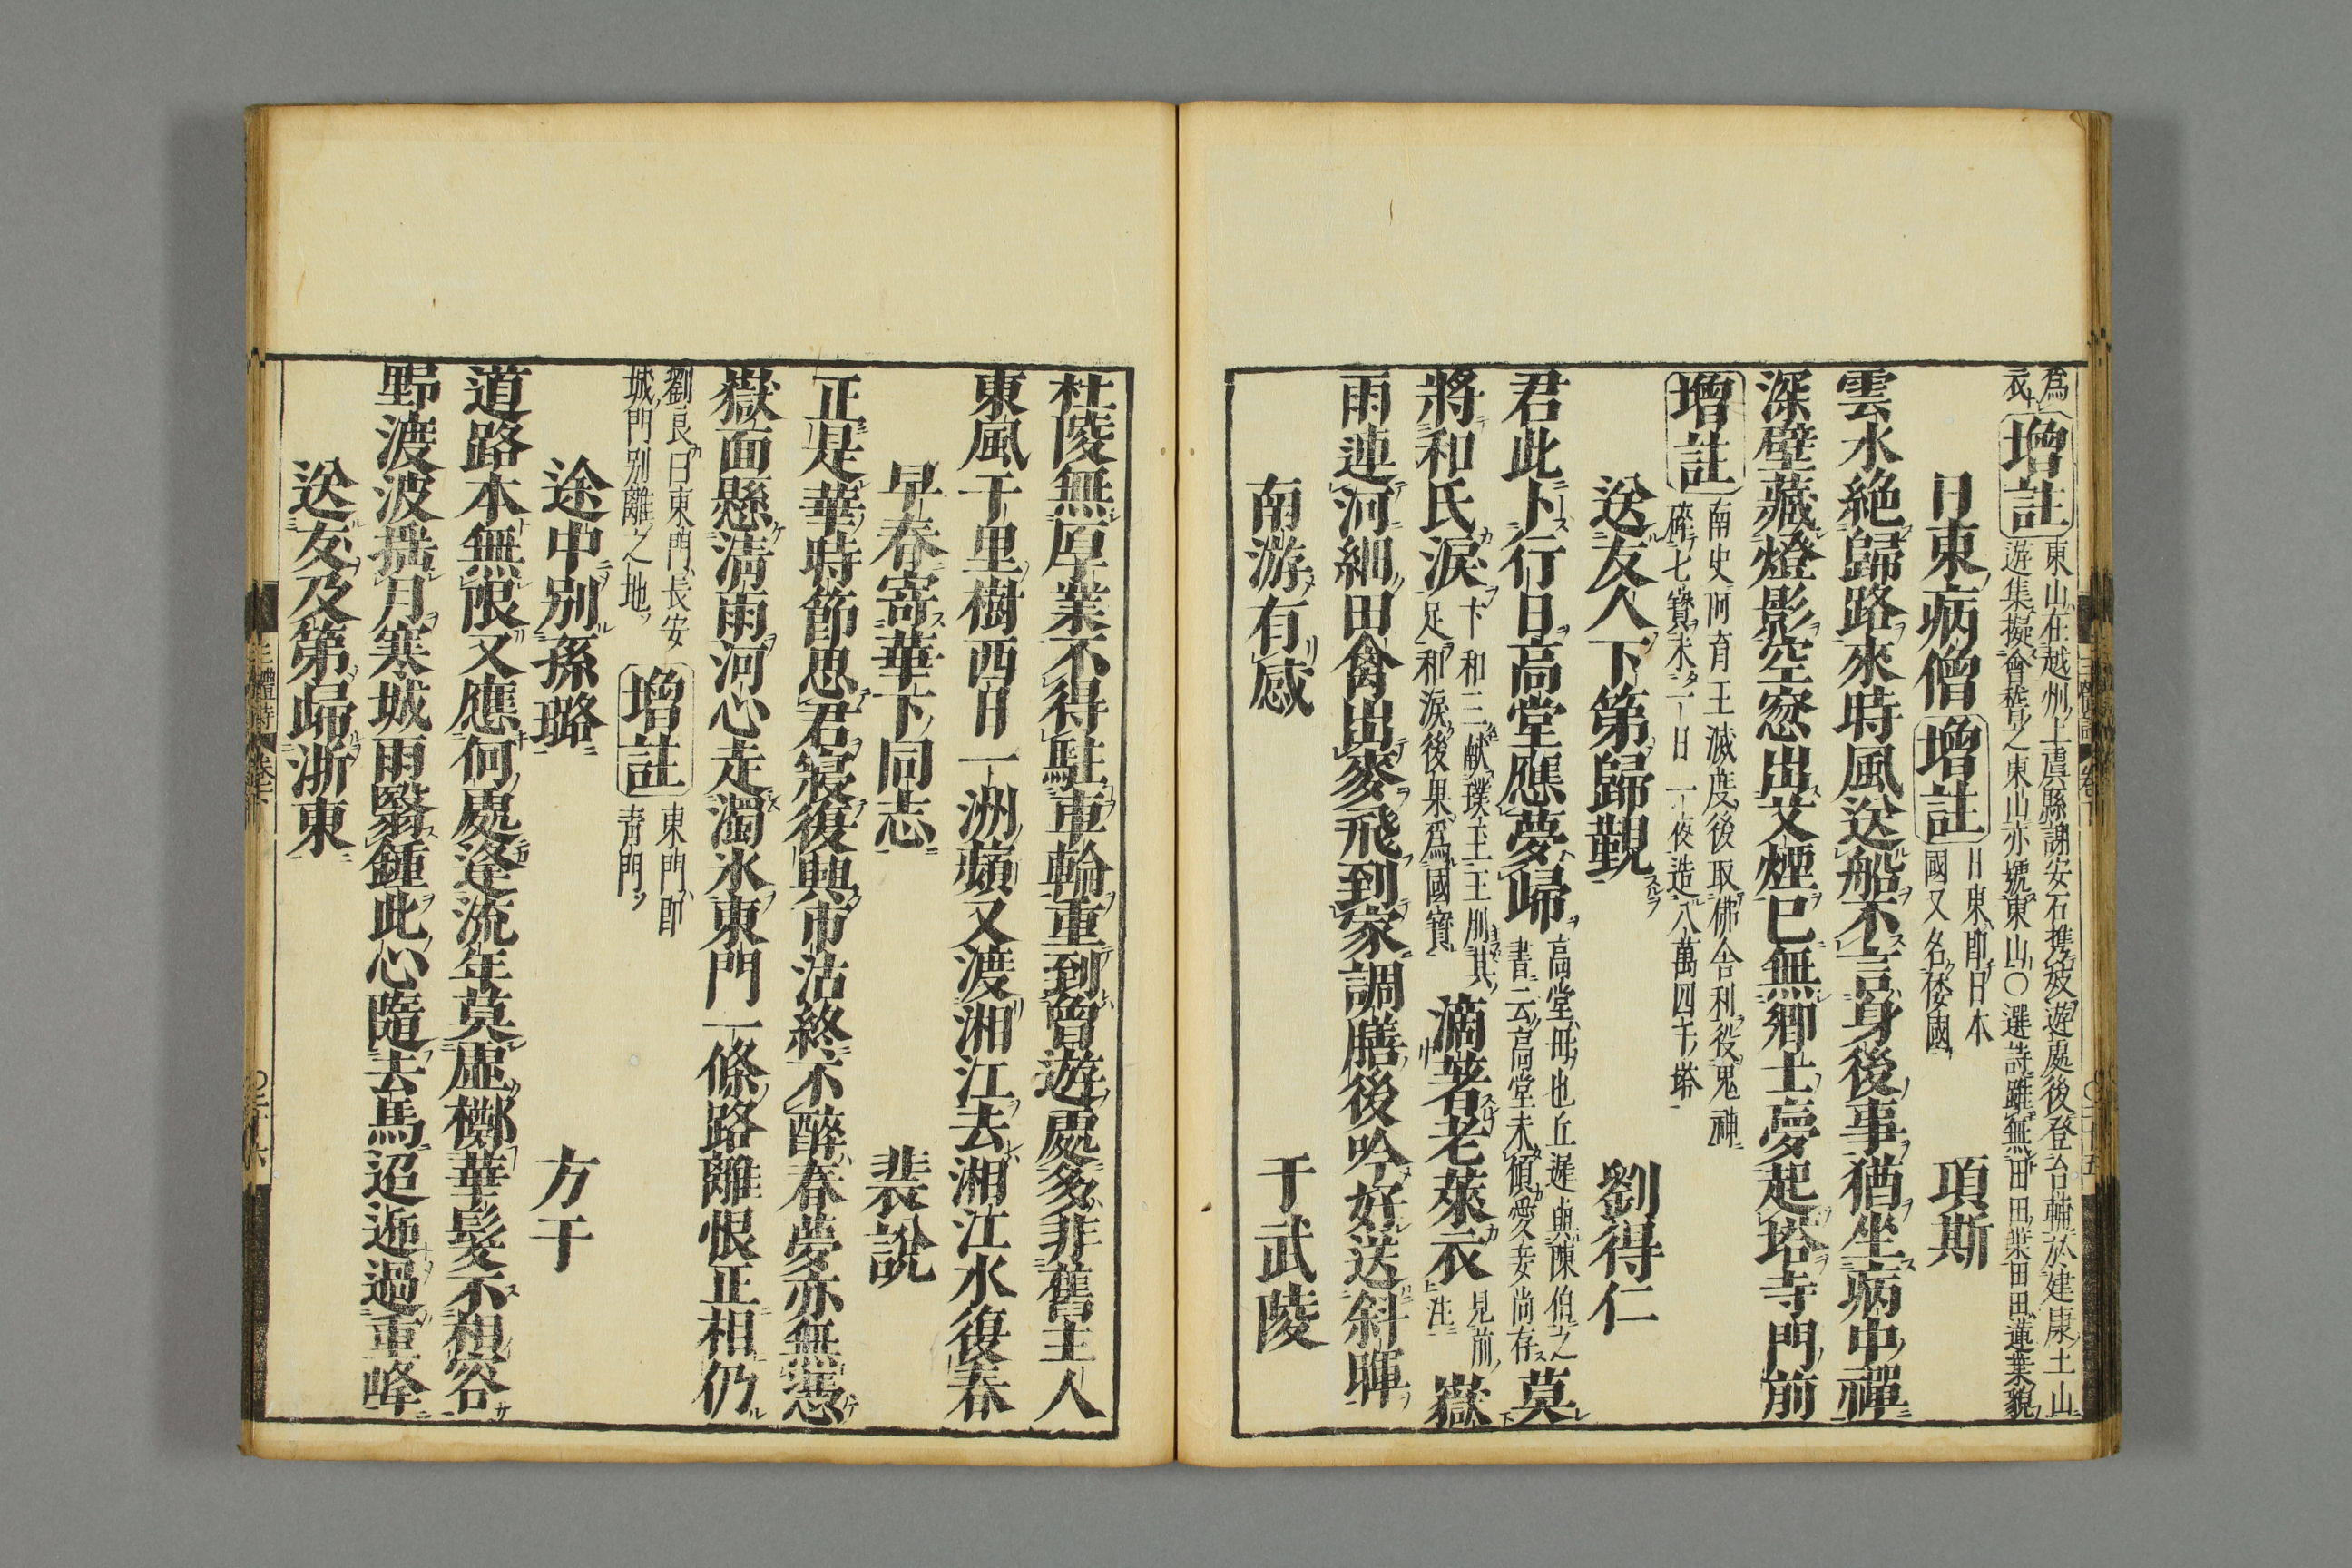 爲
衣
增註
東山在越州上虞縣謝安石携妓遊處後登台輔於建康土山
遊集擬會稽之東山亦號東山○選詩雖無田田葉田田蓮葉貌
日東病僧
增註
日東即日本
國又名倭國
項斯
雲水絶歸路來時風送船不言身後事猶坐病中禪
深壁藏燈影空窓出艾煙已無郷土夢起塔寺門前
增註
南史阿育王滅度後取佛舍利役鬼神
碎七寶末一日一夜造八萬四千塔
送友人下第歸覲
劉得仁
君此卜行日高堂應夢歸
高堂母也丘遲與陳伯之
書云高堂未傾愛妾尚存
莫
將和氏淚
卞和三獻璞玉王刖其
足和淚後果爲國寶
滴著老萊衣
見前
注
嶽
雨連河細田禽出麥飛到家調膳後吟好送斜暉
南游有感
于武陵
杜陵無厚業不得駐車輪重到曾遊處多非舊主人
東風千里樹西日一洲蘋又渡湘江去湘江水復春
早春寄華下同志
裴說
正是華時節思君寢復興市沽終不醉春夢亦無憑
嶽面懸清雨河心走濁氷東門一條路離恨正相仍
劉良曰東門長安
城門别離之地
增註
東門即
青門
途中別孫璐
方干
道路本無限又應何處逢流年莫虛擲華髮不相容
野渡波搖月寒城雨翳鍾此心隨去馬迢遞過重峰
送友及第歸浙東
三體詩
卷下